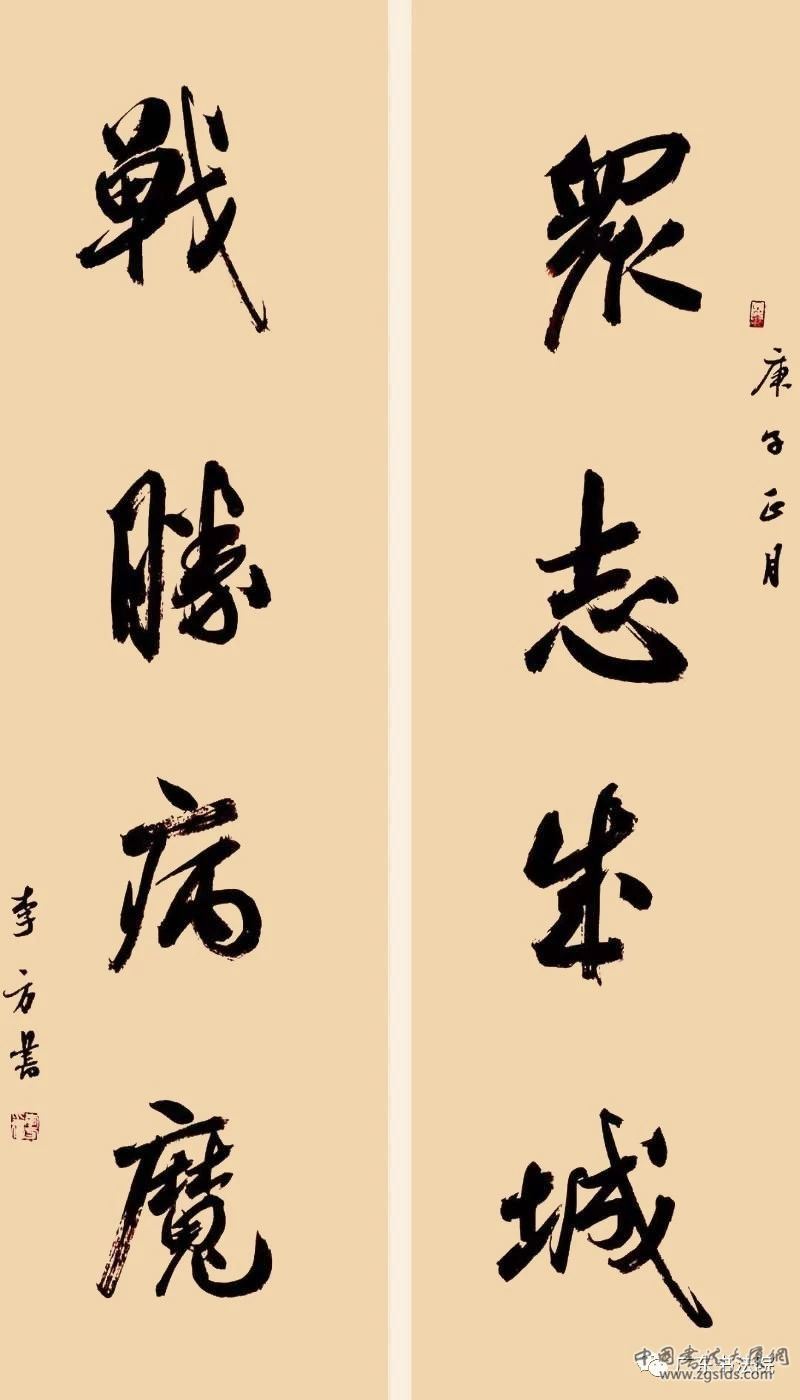 眾志成城
庚子正月
戰勝病魔
李方書
广东书法院
中国书法大厦网
www.zgsfds.com